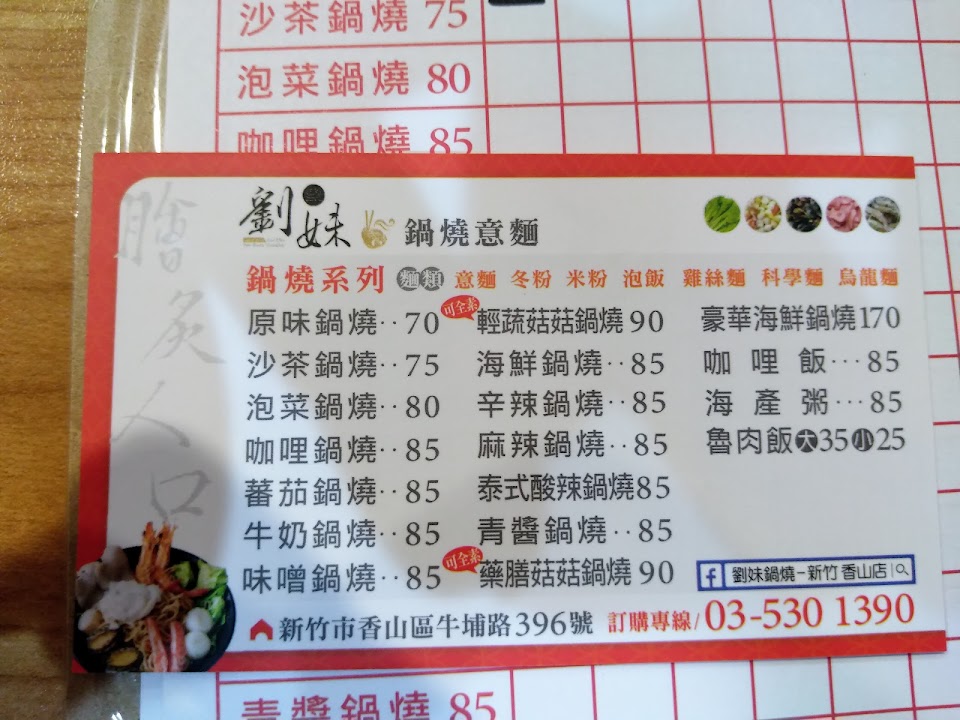 沙茶鍋燒 75
泡菜鍋燒 80
咖哩鍋燒 85
膾炙人口
劉妹 鍋燒意麵
鍋燒系列 麵類 意麵 冬粉 米粉 泡飯 雞絲麵 科學麵 烏龍麵
原味鍋燒‥70
沙茶鍋燒‥75
泡菜鍋燒‥80
咖哩鍋燒‥85
蕃茄鍋燒‥85
牛奶鍋燒‥85
味噌鍋燒‥85
可全素 輕蔬菇菇鍋燒 90
海鮮鍋燒‥85
辛辣鍋燒‥85
麻辣鍋燒‥85
泰式酸辣鍋燒85
青醬鍋燒‥85
可全素 藥膳菇菇鍋燒 90
豪華海鮮鍋燒170
咖哩飯⋯85
海產粥⋯85
魯肉飯大35小25
f 劉妹鍋燒-新竹香山店
新竹市香山區牛埔路396號 訂購專線/03-530 1390
青醬鍋燒 85